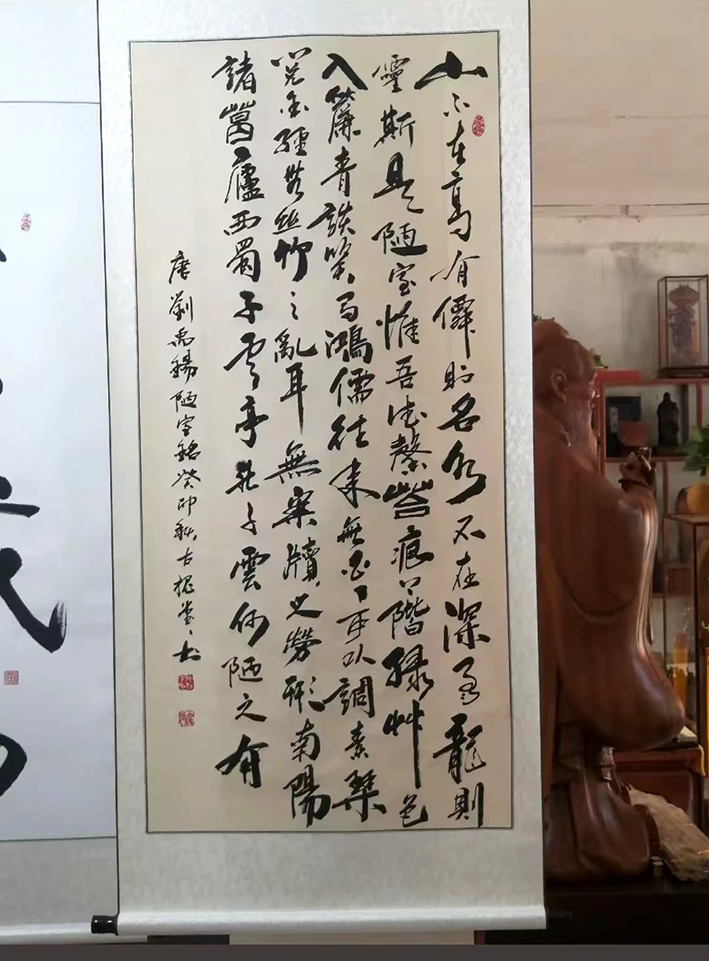 山不在高有僊則名水不在深有龍則
靈斯是陋室惟吾德馨苔痕上階綠艸色
入簾青談笑有鴻儒往來無白丁可以調素琴
閱金經無絲竹之亂耳無案牘之勞形南陽
諸葛廬西蜀子雲亭孔子雲何陋之有
唐劉禹錫陋室銘癸卯秋古堂主书